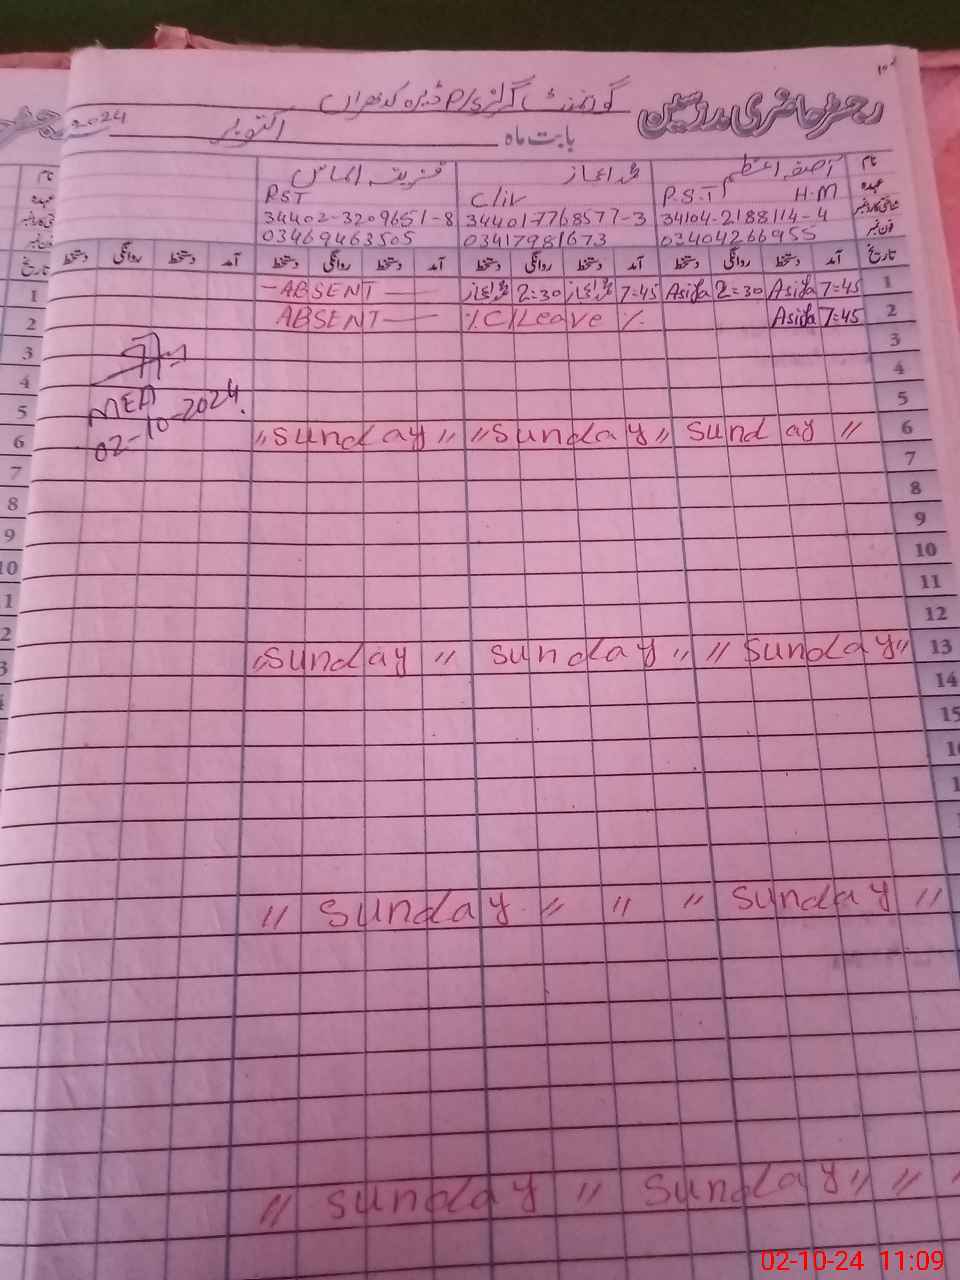 رجسٹر حاضری مدرسین
گورنمنٹ گرلز P/S ڈیرہ کدھراں
بابت ماہ اکتوبر 2024
نام آصفہ اعظم محمد اعجاز الماس
عہدہ P.S.T H.M Cliv PST
شناختی کارڈ نمبر 34104-2188114-4 344017768577-3 34402-3209651-8
فون نمبر 03404266955 03417981673 03469463505
تاریخ آمد دستخط روانگی دستخط آمد دستخط روانگی دستخط آمد دستخط روانگی دستخط آمد دستخط روانگی دستخط تاریخ
1 7=45 Asifa 2=30 Asifa 7=45 محمد اعجاز 2=30 محمد اعجاز - ABSENT — 1
2 7=45 Asifa ٪ C/Leave ٪ ABSENT — 2
3 3
4 4
MEA
5 5
02-10-2024
6 "Sunday" "Sunday" Sunday " 6
7 7
8 8
9 9
10 10
11
12
13 "Sunday" Sunday " " Sunday"
14
15
" Sunday " " " Sunday "
" Sunday " Sunday " "
02-10-24 11:09